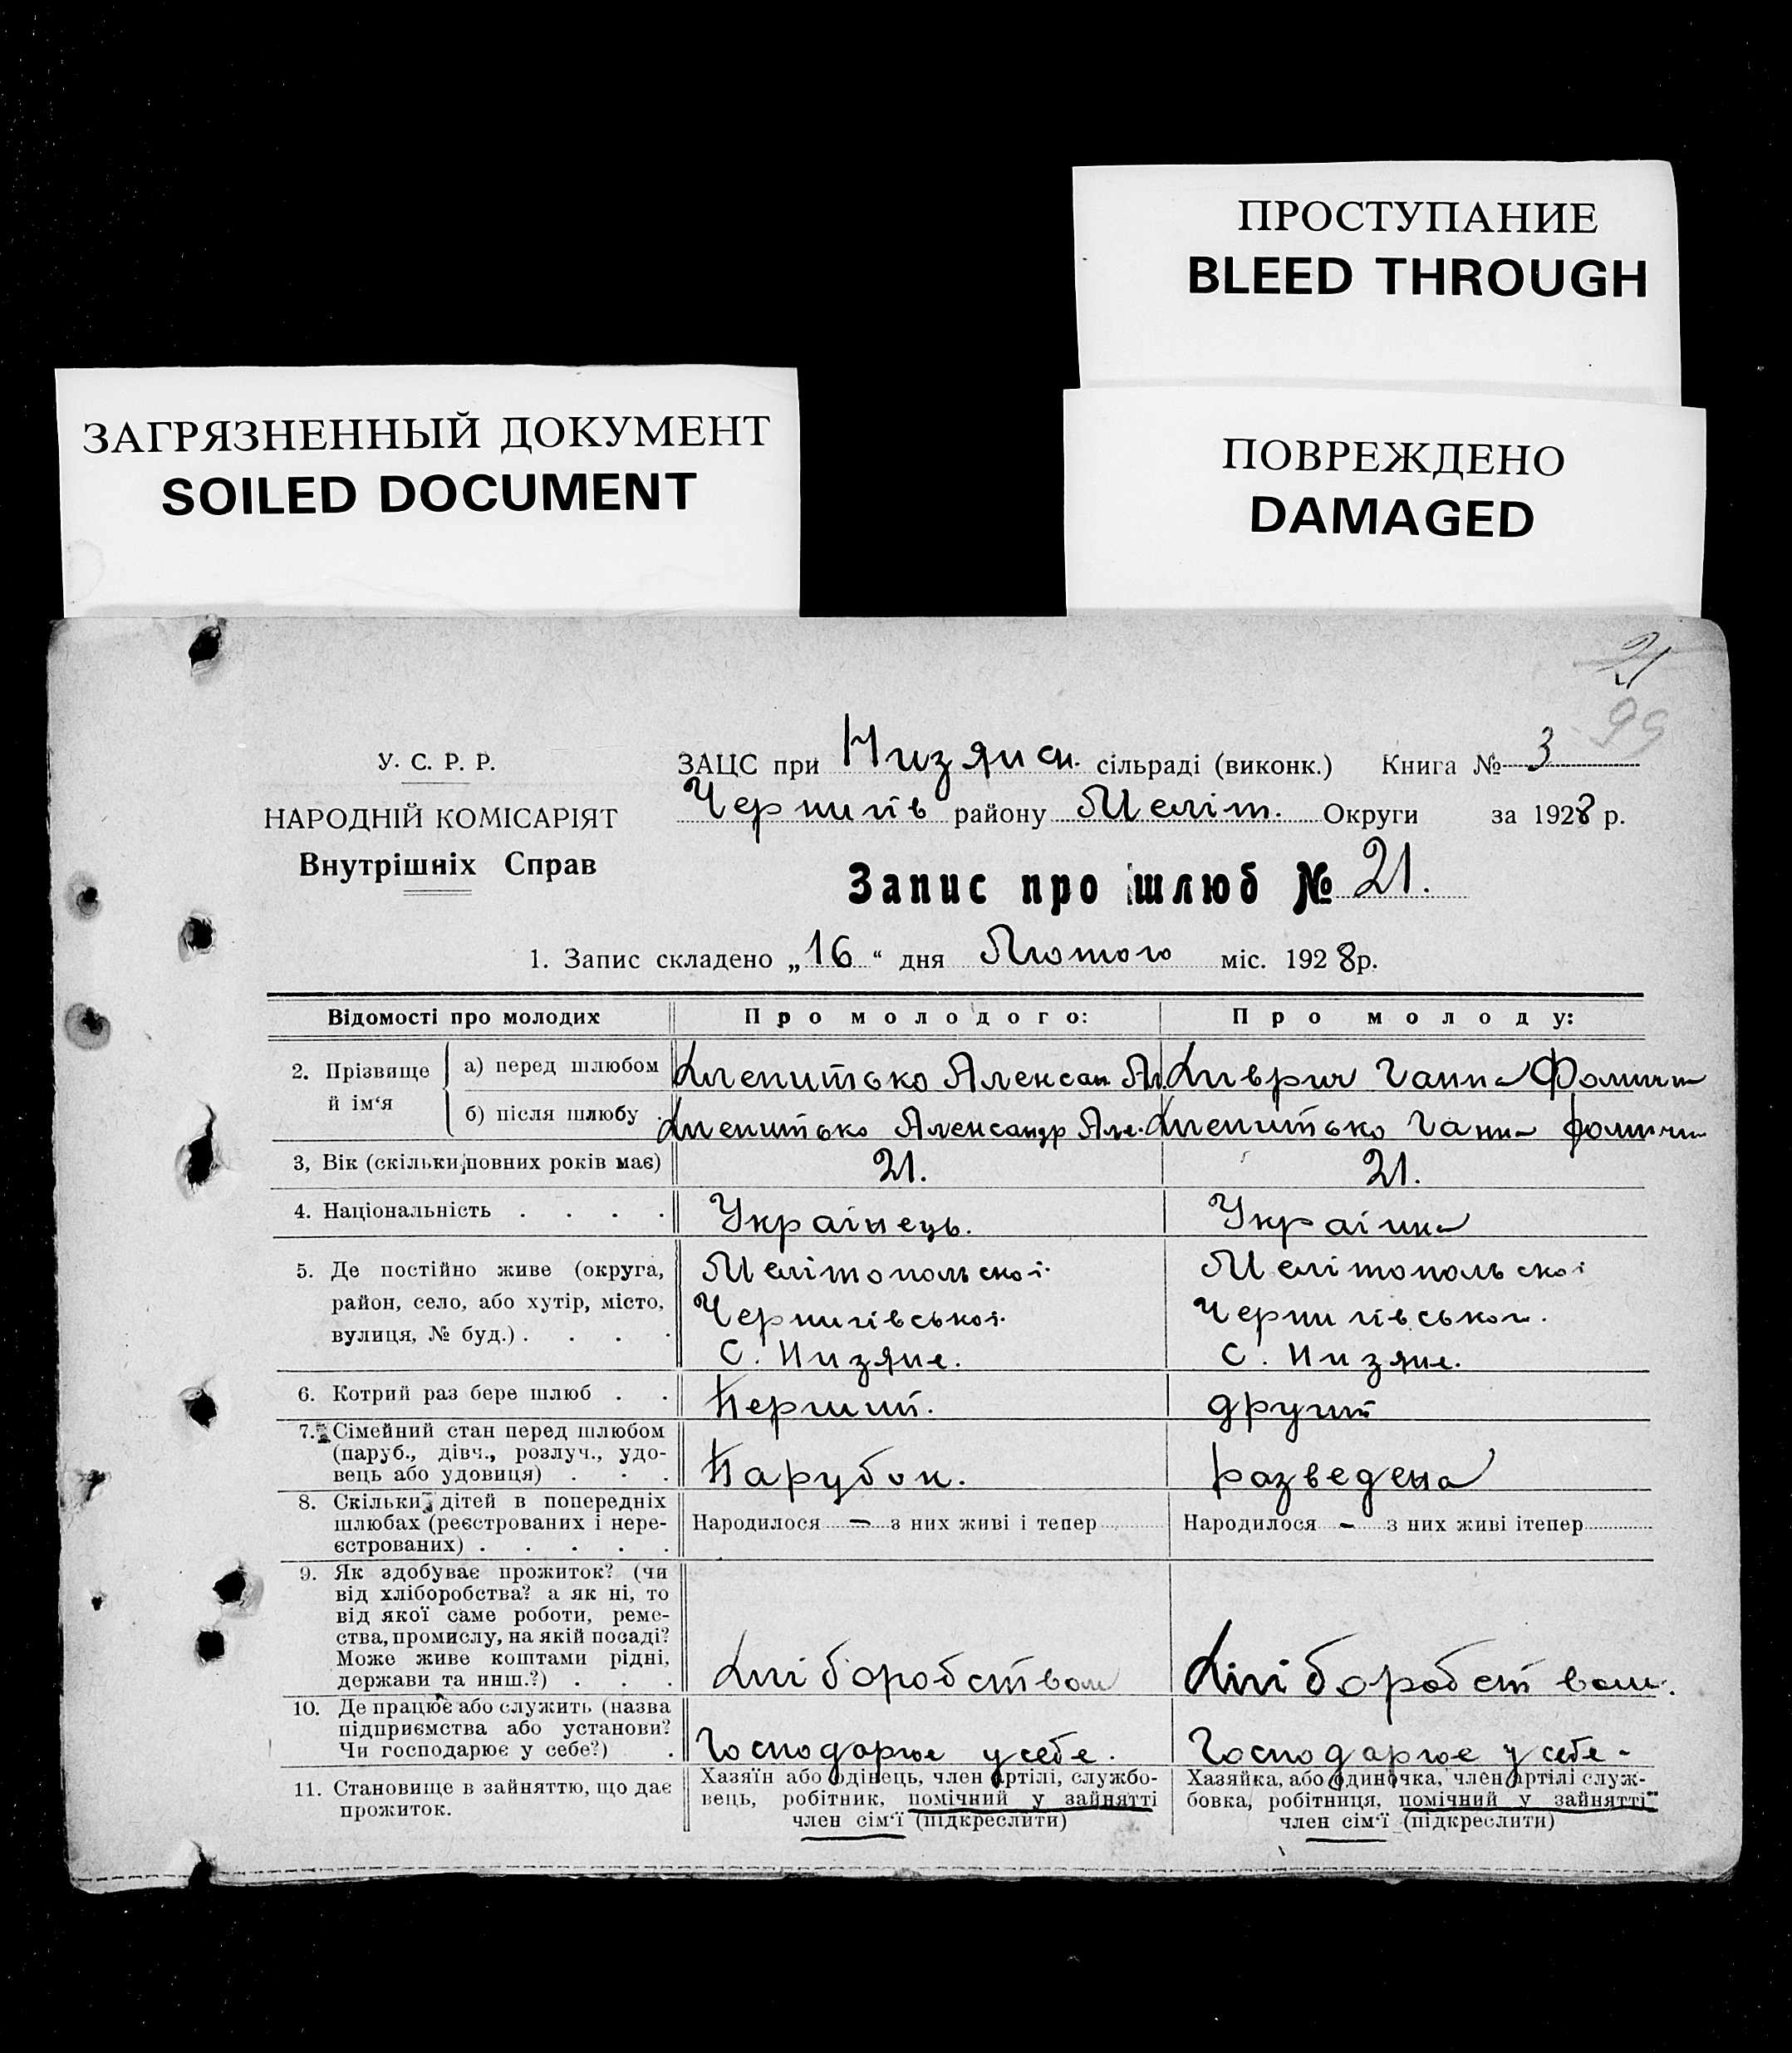 ПРОСТУПАНИЕ
BLEED THROUGH
ЗАГРЯЗНЕННЫЙ ДОКУМЕНТ
SOILED DOCUMENT
ПОВРЕЖДЕНО
DAMAGED
21
99
У. С. Р. Р.
НАРОДНІЙ КОМІСАРІЯТ
Внутрішніх Справ
ЗАЦС при Низянсн. сільраді (виконк.) Книга № 3
Чернигів району Меліт. Округи за 1928 р.
Запис про шлюб № 21.
1. Запис складено „16“ дня Лютого міс. 1928 р.
Відомості про молодих
Про молодого:
Про молоду:
2. Прізвище й ім‘я
а) перед шлюбом
Александ Ал.
Ганна
б) після шлюбу
Александр Але.
Ганна
3, Вік (скільки повних років має)
21.
21.
4. Національність . . . .
Українець.
Українка
5. Де постійно живе (округа,
район, село, або хутір, місто,
вулиця, № буд.) . . . .
Мелітопольскоі
Чернигівськоі
С. Низяне.
Мелітопольскоі
Чернигівськоі.
С. Низяне.
6. Котрий раз бере шлюб . .
Перший.
другий
7. Сімейний стан перед шлюбом
(паруб., дівч., розлуч., удо-
вець або удовиця) . . .
Парубок.
разведена
8. Скільки дітей в попередніх
шлюбах (реєстрованих і нере-
єстрованих) . . . . .
Народилося — з них живі і тепер
Народилося — з них живі ітепер
9. Як здобуває прожиток? (чи
від хліборобства? а як ні, то
від якої саме роботи, реме-
ства, промислу, на якій посаді?
Може живе коштами рідні,
держави та инш.?) . . .
Хліборобством
Хліборобством.
10. Де працює або служить (назва
підприємства або установи?
Чи господарює у себе?) .
Господарює у себе.
Господарює у себе -
11. Становище в зайняттю, що дає
прожиток.
Хазяїн або одінець, член артілі, службо-
вець, робітник, помічний у зайнятті
член сім‘ї (підкреслити)
Хазяйка, або одиночка, член артілі служ-
бовка, робітниця, помічний у зайнятті
член сім‘ї (підкреслити)